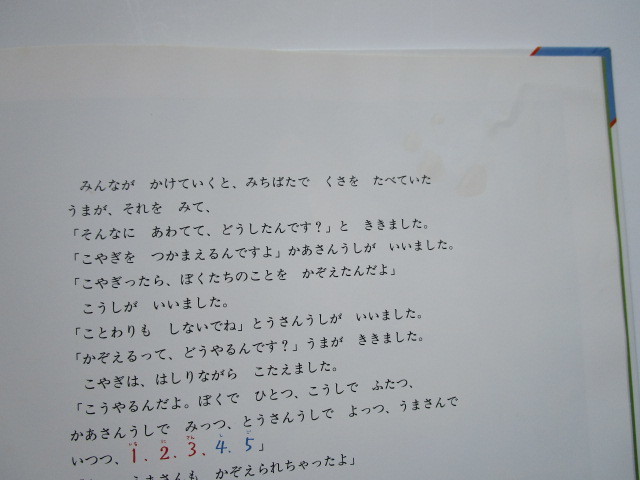 みんなが　かけていくと、みちばたで　くさを　たべていた
うまが、それを　みて、
「そんなに　あわてて、どうしたんです？」と　ききました。
「こやぎを　つかまえるんですよ」かあさんうしが　いいました。
「こやぎったら、ぼくたちのことを　かぞえたんだよ」
こうしが　いいました。
「ことわりも　しないでね」とうさんうしが　いいました。
「かぞえるって、どうやるんです？」うまが　ききました。
こやぎは、はしりながら　こたえました。
「こうやるんだよ。ぼくで　ひとつ、こうしで　ふたつ、
かあさんうしで　みっつ、とうさんうしで　よっつ、うまさんで
いつつ、1．2．3．4．5」
うまさんも　かぞえられちゃったよ」